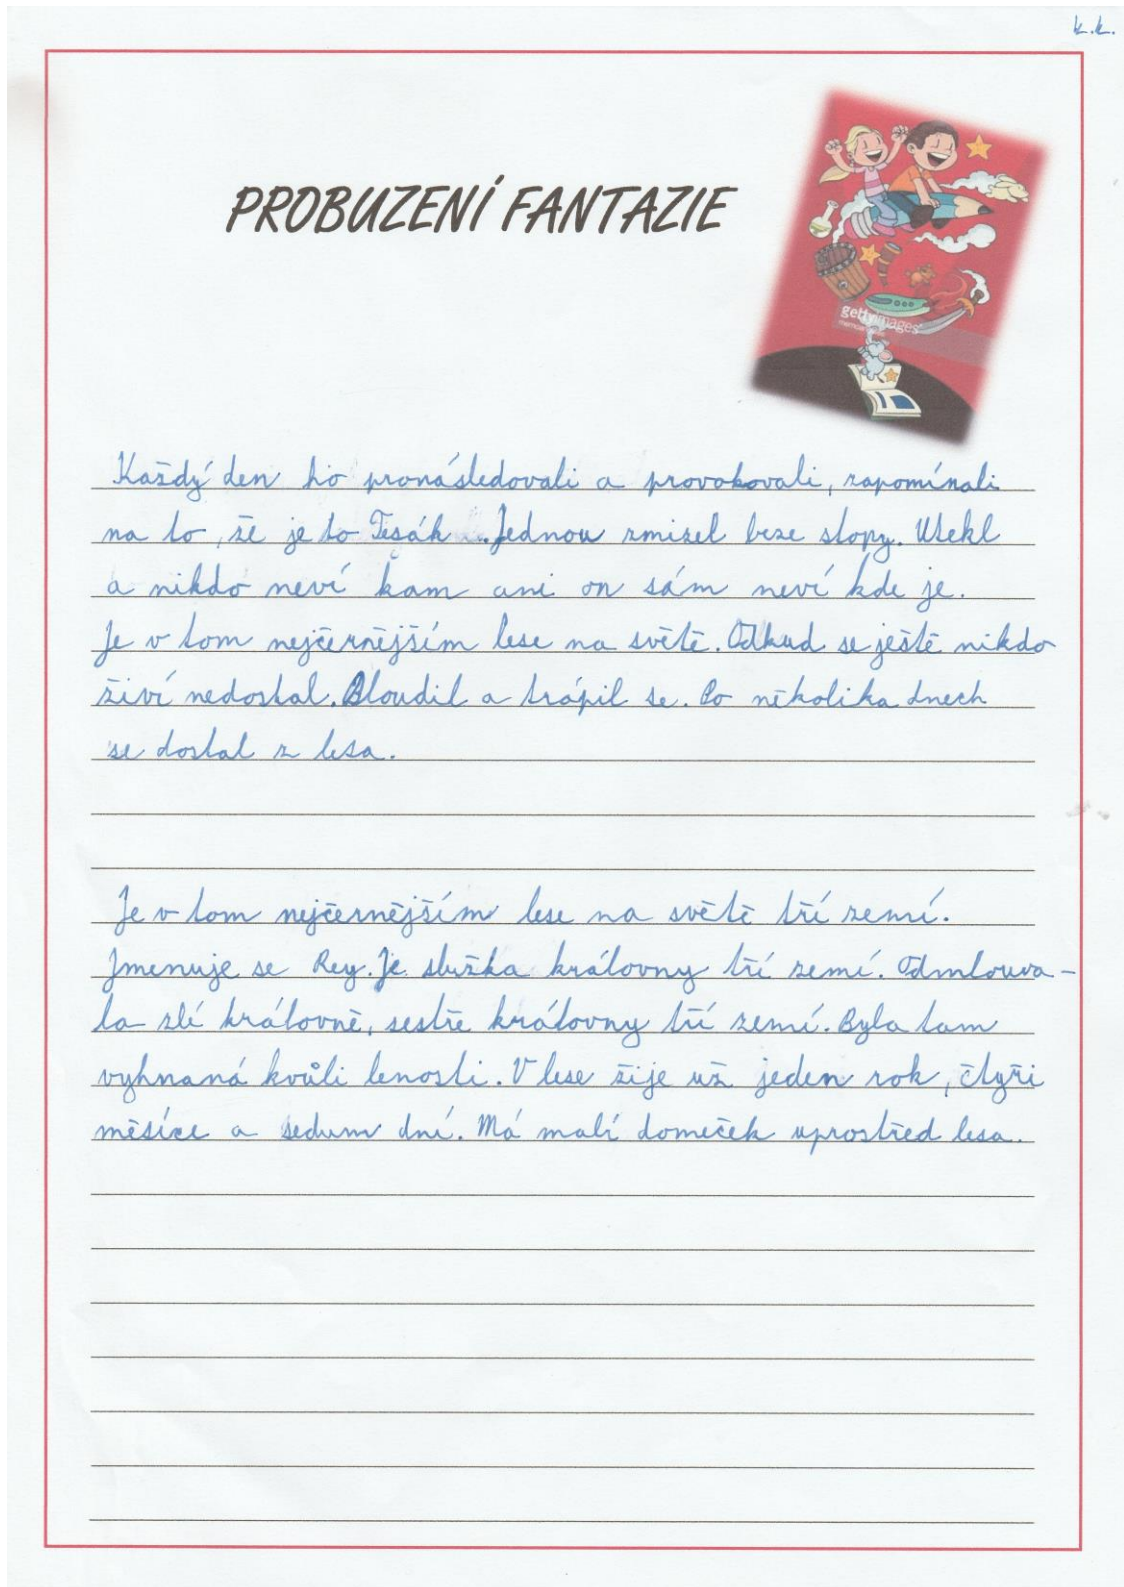 k.k.
PROBUZENÍ FANTAZIE
gettyimages
Každý den ho pronásledovali a provokovali, zapomínali
na to, že je to Tesák. Jednou zmizel beze stopy. Utekl
a nikdo neví kam ani on sám neví kde je.
Je v tom nejčernějším lese na světě. Odkud se ještě nikdo
živí nedostal. Bloudil a trápil se. Po několika dnech
se dostal z lesa.
Je v tom nejčernějším lese na světě tří zemí.
Jmenuje se Rey. Je služka královny tří zemí. Odmlouva-
la zlé královně, sestře královny tří zemí. Byla tam
vyhnaná kvůli lenosti. V lese žije už jeden rok, čtyři
měsíce a sedum dní. Má malí domeček uprostřed lesa.